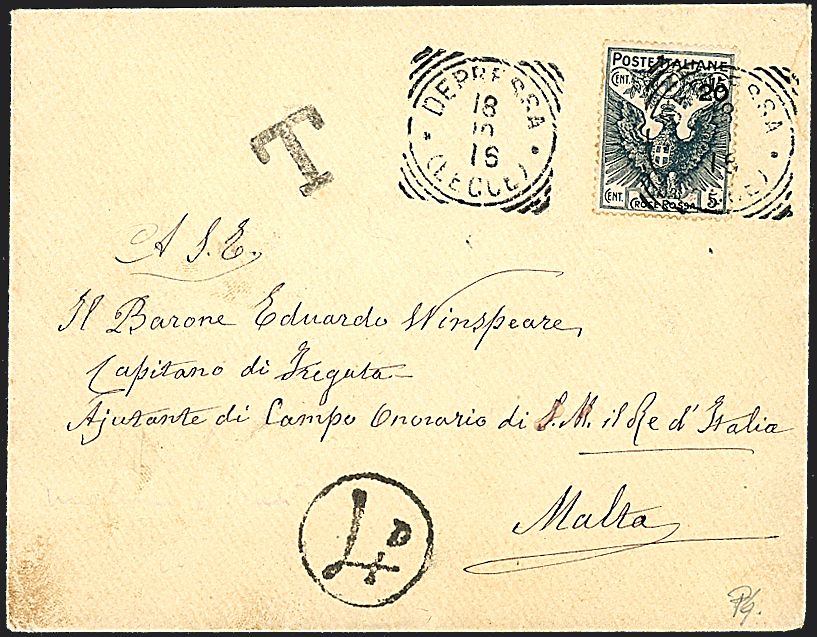 POSTE ITALIANE
CENT. 20
DEPRESSA
18
10
16
(LECCE)
T
CENT. 15
CROCE ROSSA
A S. E.
Il Barone Eduardo Winspeare,
Capitano di Fregata
Ajutante di Campo Onorario di S. M. il Re d'Italia
Malta
4D